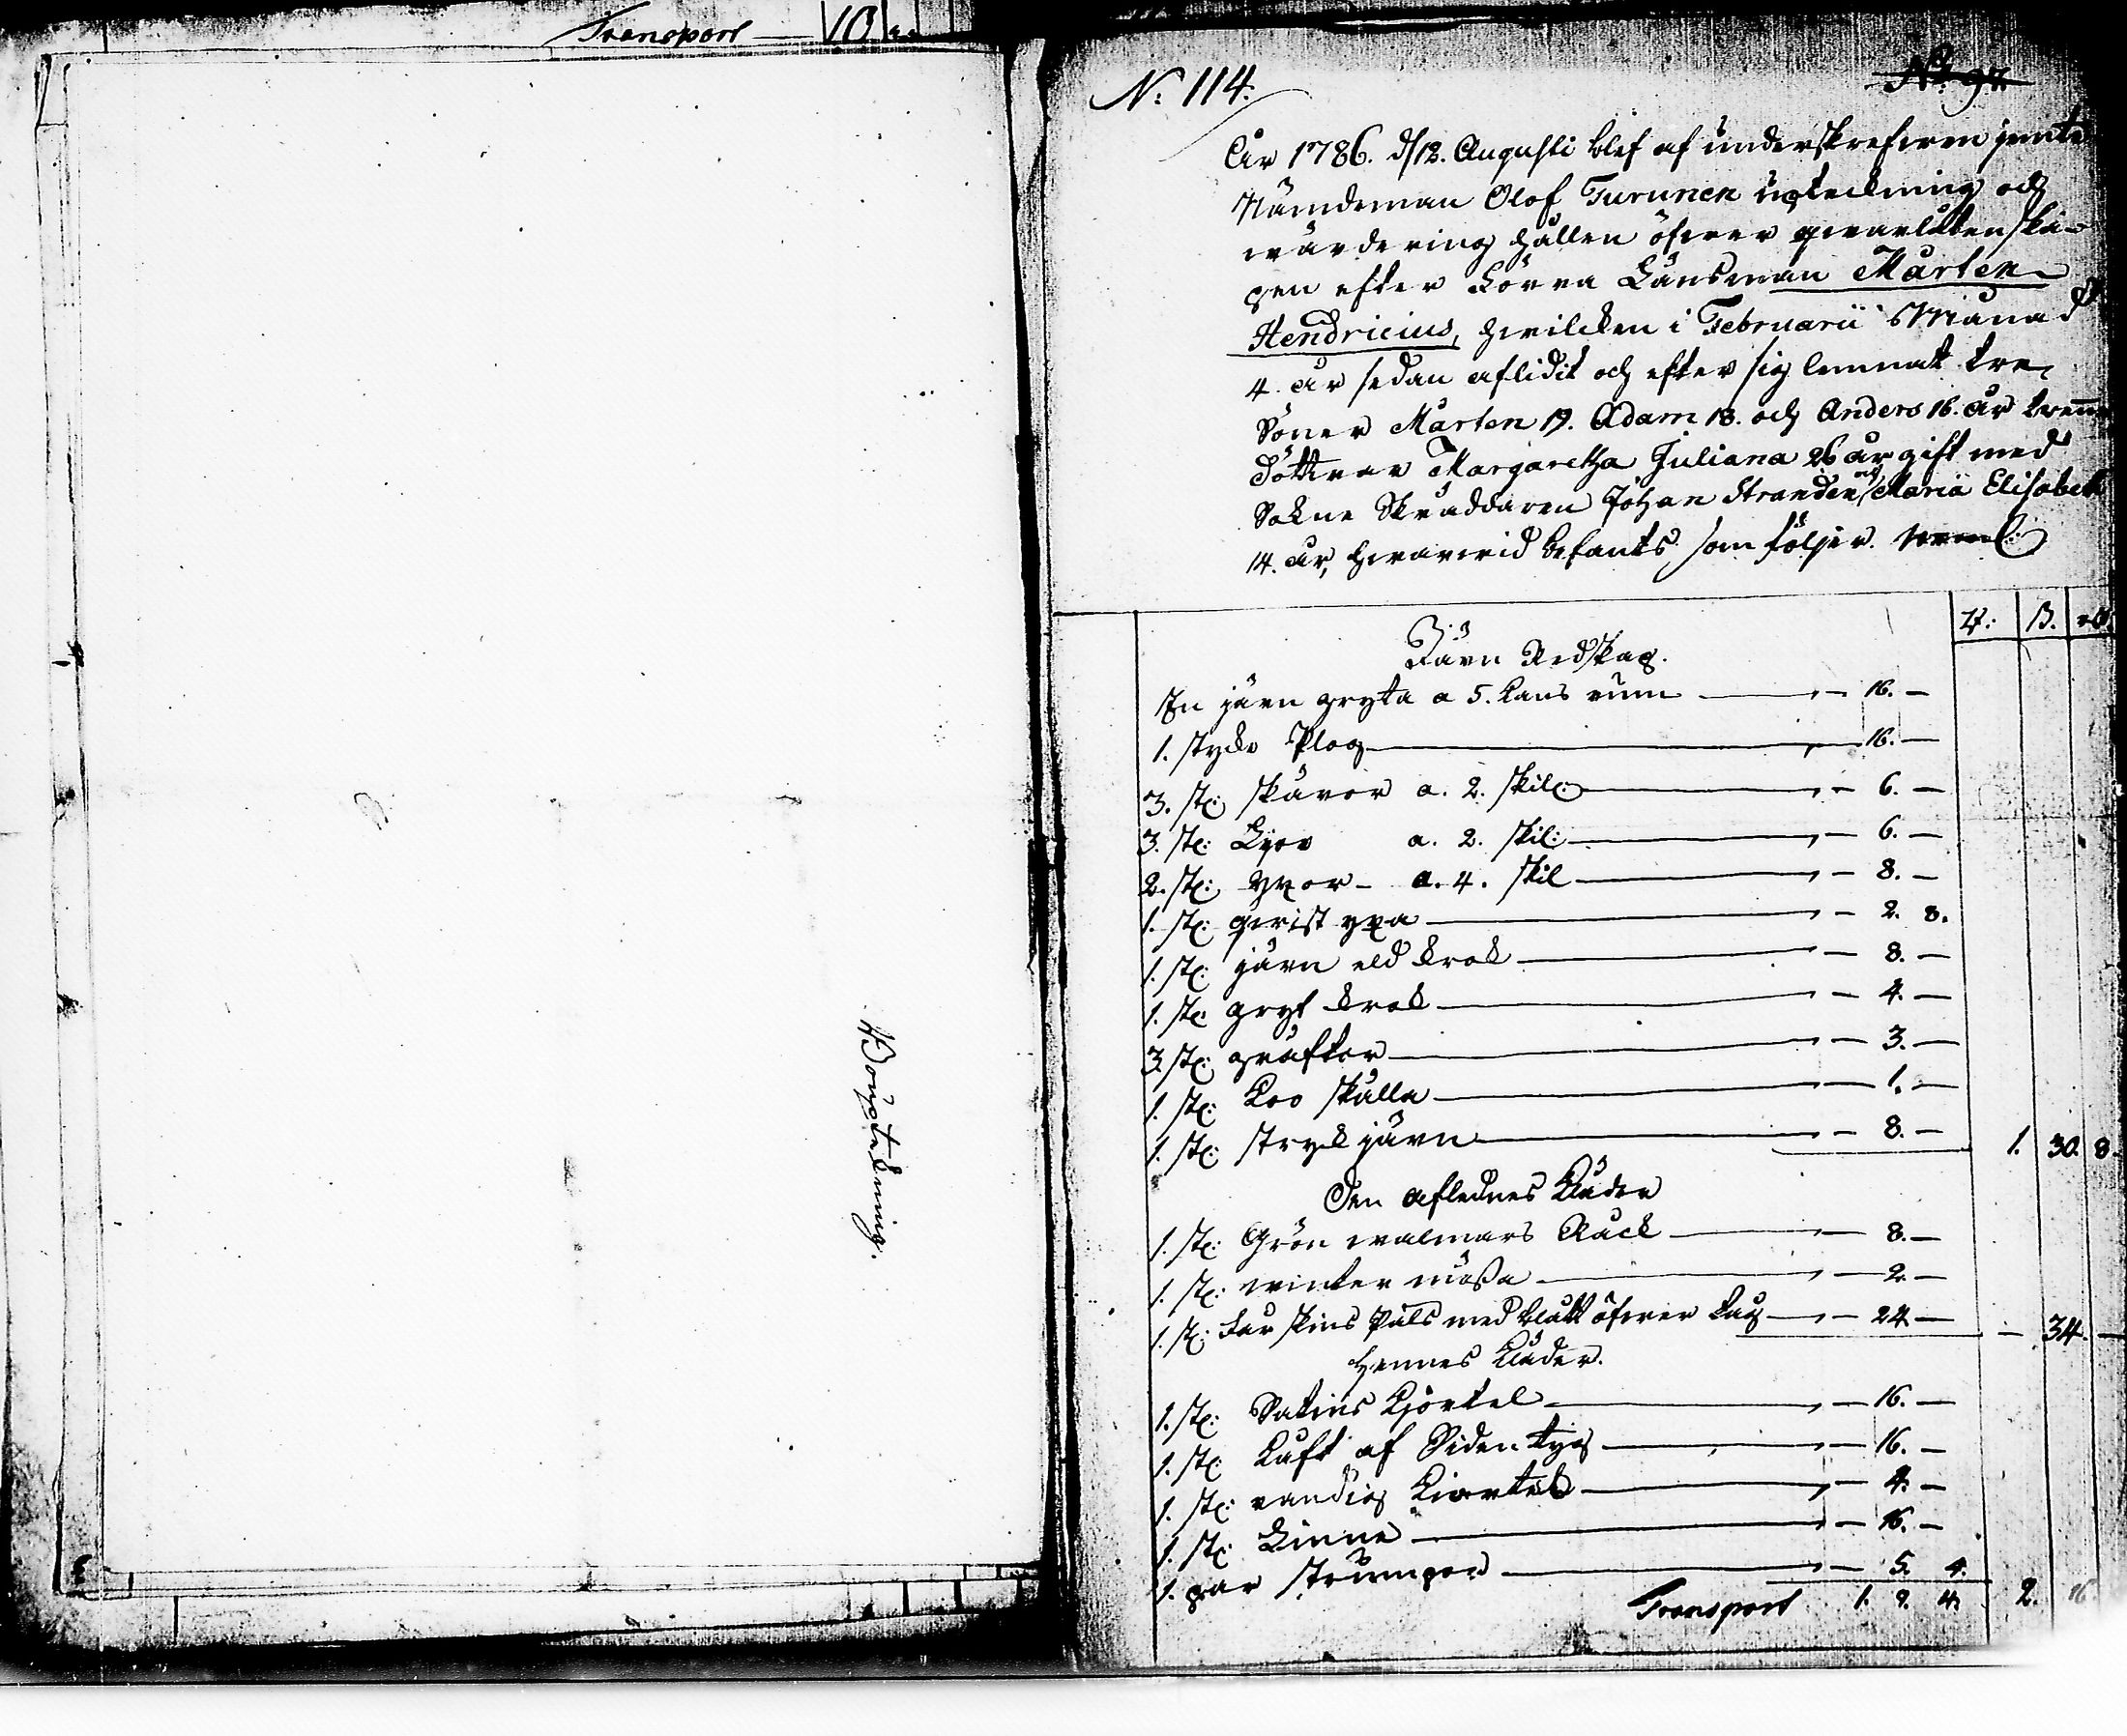 Transport — 10
Bouptekning.
N: 114.
No 97
År 1786. d/12. Augusti blef af underskrefven jemte
Nämdeman Olof Turunen upteckning och
värdering hållen öfver qvarlåtenska-
pen efter Länsman Mårten
Hendricius, hvilcken i Februarii Månad
4. år sedan aflidit och efter sig lemnat tre
Söner Mårten 19. Adam 18. och Anders 16. år
döttrar Margaretha Juliana 26 år gift med
Sokne Skräddaren Johan Stranden och Maria Elisabet
14. år, hvarvid befants som följer.
R: ß. rs.
Järn Redskap.
En järn gryta a 5. kans rum — 16. —
1. stycke Plog — 16. —
3. st: skäror a. 2. skil: — 6. —
3. st: Lijor a. 2. skil: — 6. —
2. st: yxor — a. 4. skil — 8. —
1. st: qvist yxa — 2. 8.
1. st: järn eld krok — 8. —
1. st: gryt krok — 4. —
3. st: gräftor — 3. —
1. st: Koo skälla — 1. —
1. st: stryk järn — 8. — 1. 30. 8.
Den aflednes Kläder
1. st: Grön valmars Råck — 8. —
1. st: vinter mössa — 2. —
1. st: Får skins Päls med blått öfver tag — 24 — — 34. —
Hennes Kläder.
1. st: Satins Kjortel — 16. —
1. st: Kuft af Siden tyg — 16. —
1. st: randig Kiortel — 4. —
1. st: Linne — 16. —
1. par strumpor — 5. 4.
Transport 1. 9. 4. 2. 16.